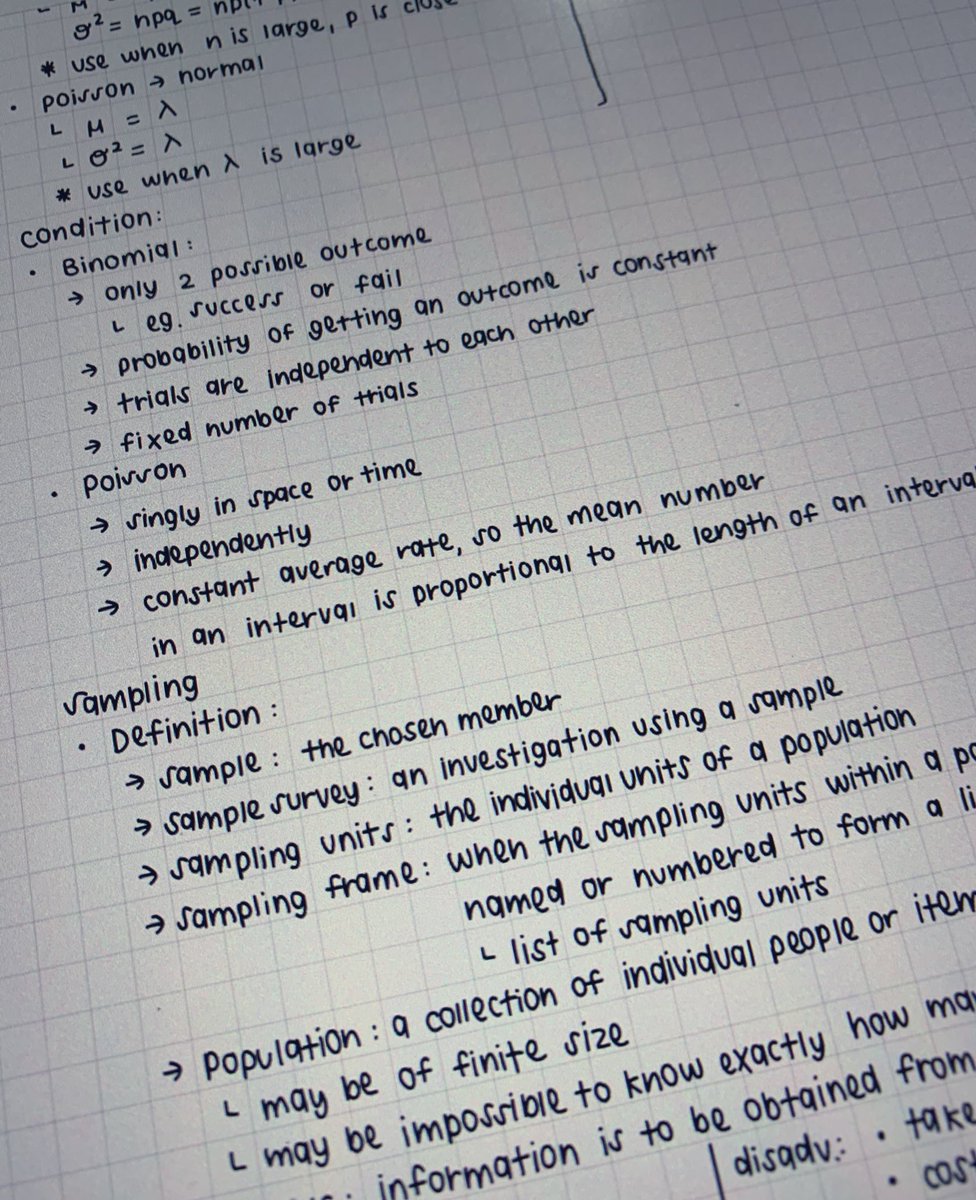 σ² = npq = np(1
* use when n is large, p is close
• poisson → normal
└ μ = λ
└ σ² = λ
* use when λ is large
condition:
• Binomial:
→ only 2 possible outcome
└ eg. success or fail
→ probability of getting an outcome is constant
→ trials are independent to each other
→ fixed number of trials
• Poisson
→ singly in space or time
→ independently
→ constant average rate, so the mean number
in an interval is proportional to the length of an interva
sampling
• Definition:
→ sample: the chosen member
→ sample survey: an investigation using a sample
→ sampling units: the individual units of a population
→ sampling frame: when the sampling units within a po
named or numbered to form a li
└ list of sampling units
→ population: a collection of individual people or item
└ may be of finite size
└ may be impossible to know exactly how ma
information is to be obtained from
disadv: • take
• cos